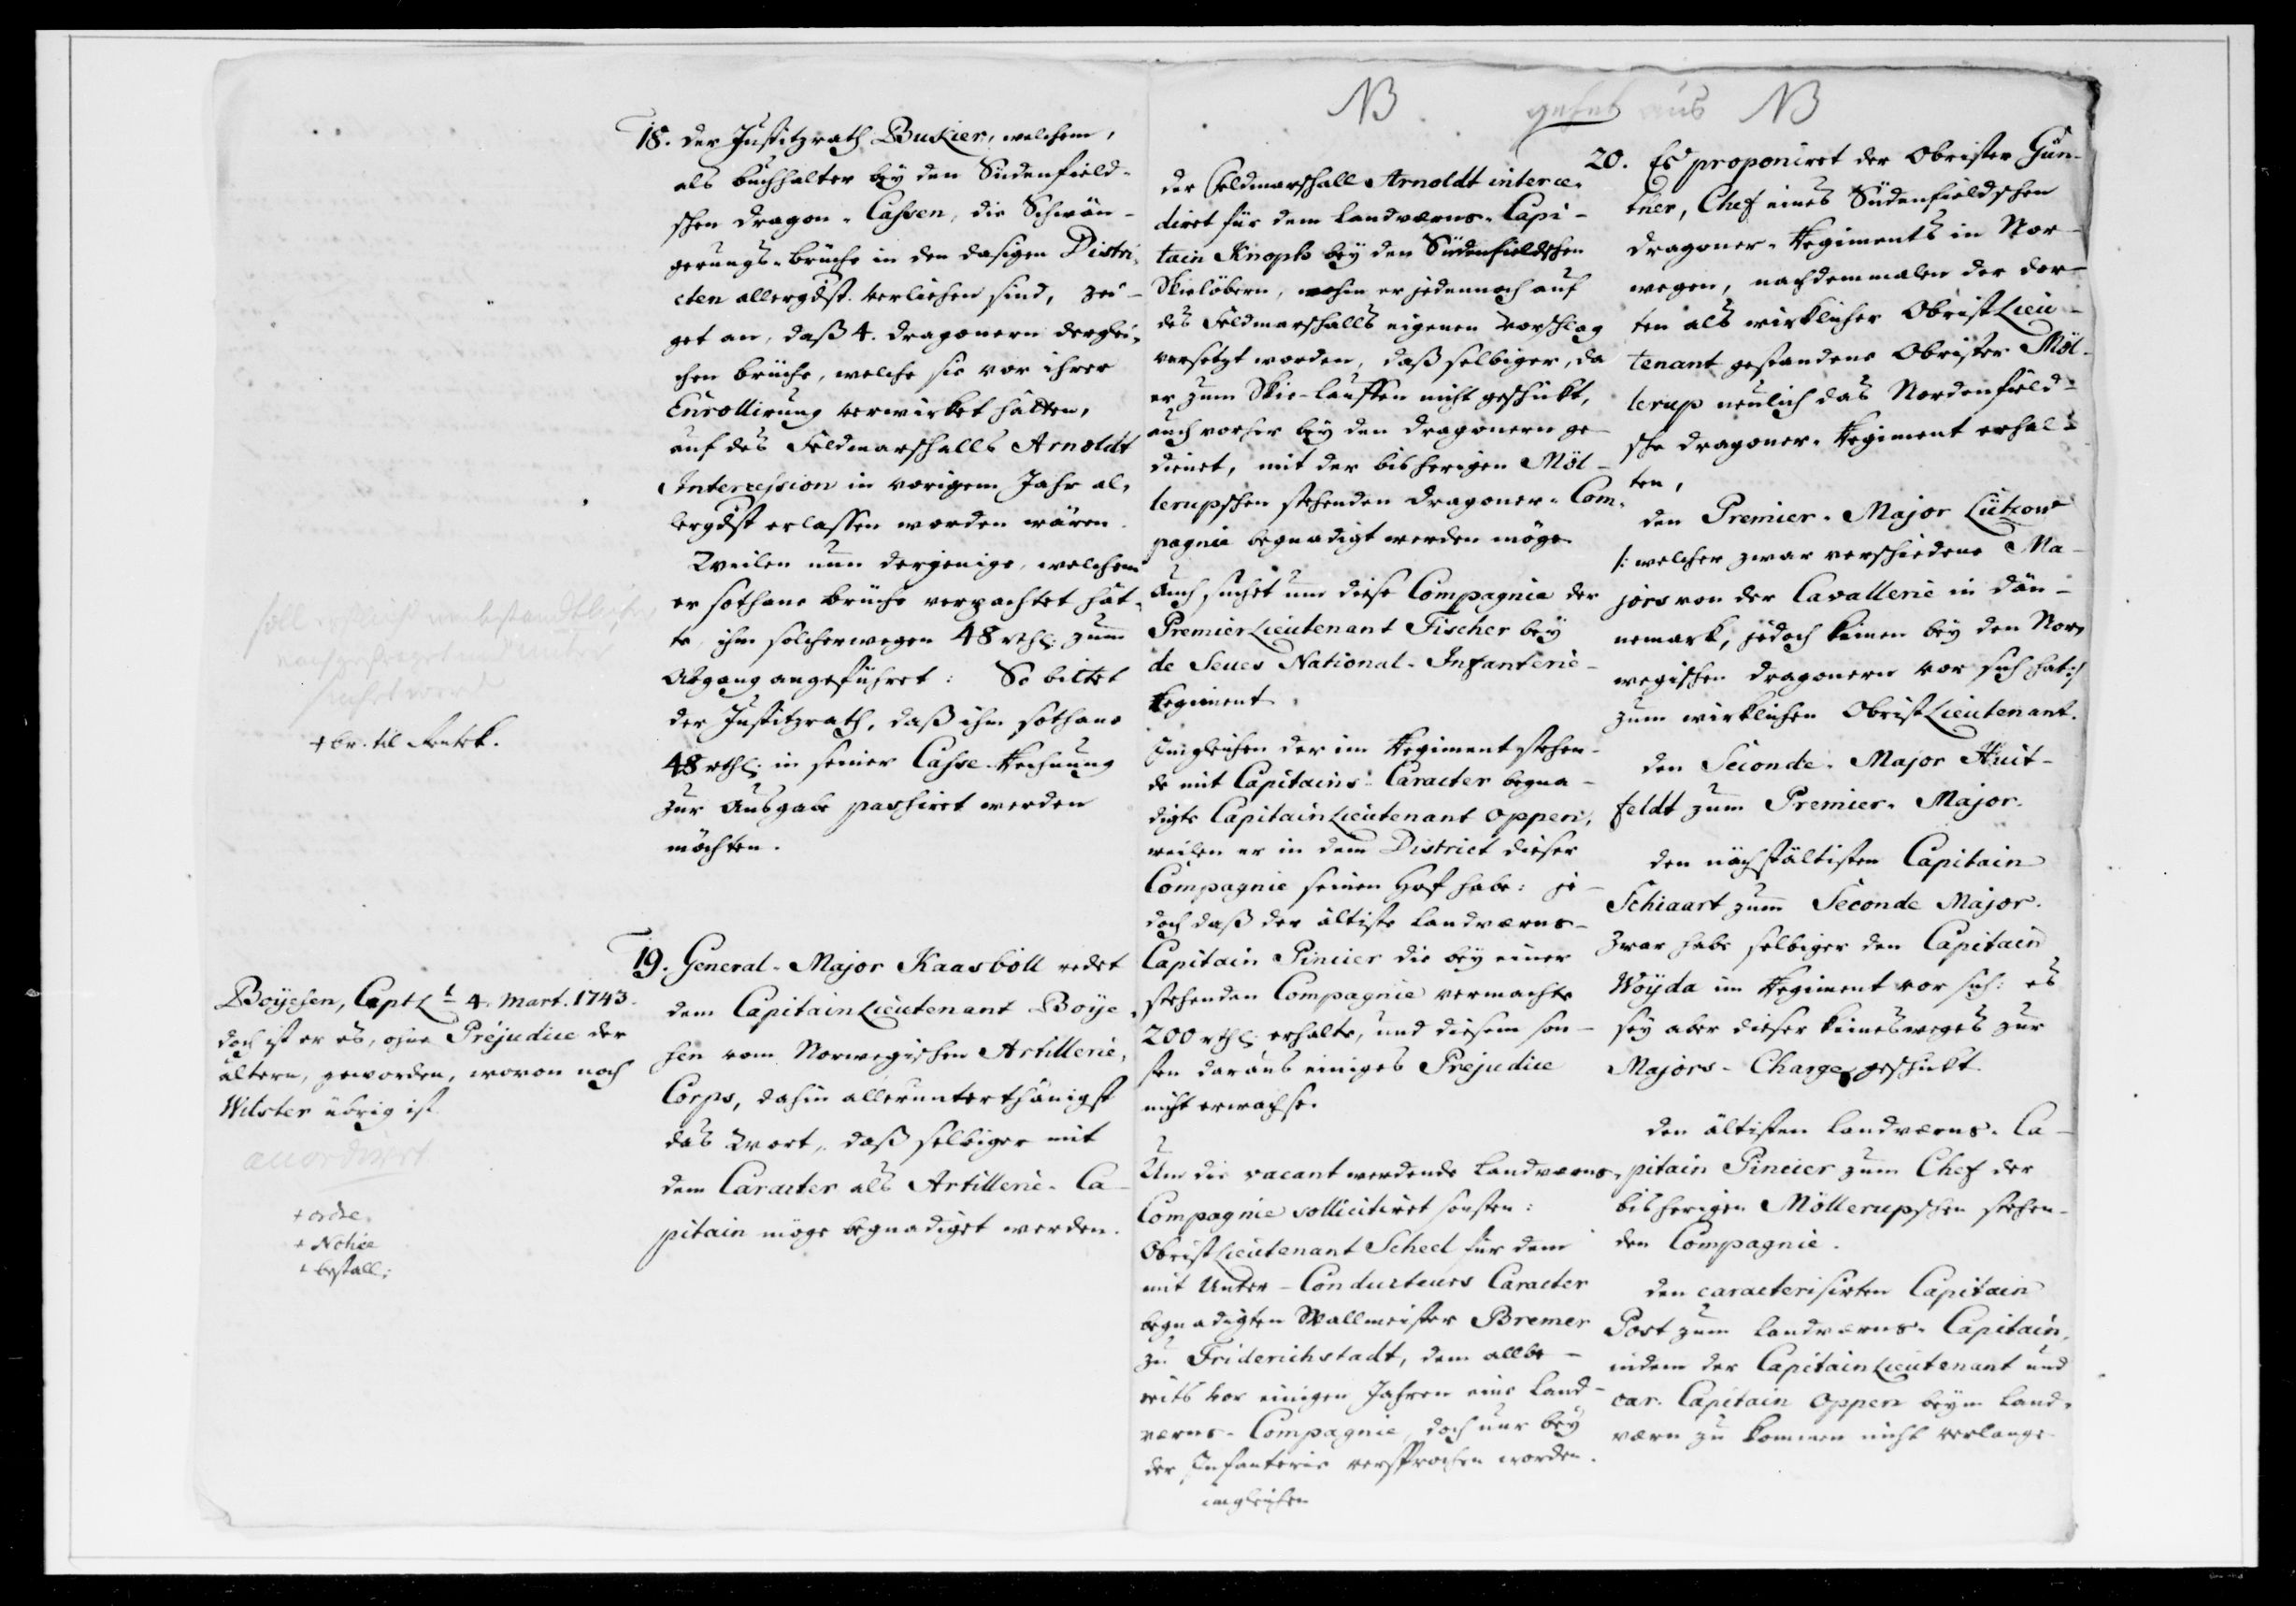 18. Der Justitzrath Buskier, welchem,
als buchhalter bey den Südenfield-
schen Dragon-Cassen, die Schwän-
gerungs-brüche in den dasigen Distri-
cten allergdst. verliehen sind, zei-
get an, daß 4. Dragonern derglei-
chen brüche, welche sie vor ihrer
Enrollirung verwirket hätten,
auf des Feldmarschalls Arnoldt
Intercession in vorigem Jahr al-
lergdst erlassen worden wären.
Weilen nun derjenige, welchem
er sothane brüche verpachtet hät-
te, ihm solcherwegen 48 rthl: zum
Abgang angeführet: So bittet
der Justitzrath, daß ihm sothane
48 rthl: in seiner Casse-Rechnung
zur Ausgabe passiret werden
möchten.
soll
nachgefraget und unter
suchet werd
+ br. til Rentek.
19. General-Major Kaasböll redet
dem CapitainLieutenant Boye-
sen vom Norwegischen Artillerie-
Corps, dahin allerunterthänigst
das Wort, daß selbiger mit
dem Caracter als Artillerie-Ca-
pitain möge begnadiget werden.
Boyesen, CaptLt 4. Mart. 1743.
doch ist er es, ohne Préjudice der
ältern, geworden, wovon noch
Wilster übrig ist.
accordiret
+ ordre.
+ Notice
+ bestall:
NB gehet aus NB
Der Feldmarschall Arnoldt interce-
diret für dem Landwærns-Capi-
tain Knoph bey den Südenfieldschen
Skielöbern, wohin er jedennoch auf
des Feldmarschalls eigenen Vorschlag
versetzt worden, daß selbiger, da
er zum Skie-lauffen nicht geschickt,
auch vorher bey den Dragonern ge-
dienet, mit der bisherigen Möl-
lerupschen stehenden Dragoner-Com-
pagnie begnadigt werden möge.
Auch suchet um diese Compagnie der
PremierLieutenant Fischer bey
de Seues National-Infanterie-
Regiment.
Imgleichen der im Regiment stehen-
de mit Capitains-Caracter begna-
digte CapitainLieutenant Oppen,
weilen er in dem District dieser
Compagnie seinen Hof habe: je-
doch daß der ältiste Landwærns-
Capitain Pincier die bey einer
stehenden Compagnie vermachte
200 rthl: erhalte, und diesem son-
sten daraus einiges Prejudice
nicht erwachse.
Um die vacant werdende Landwærns-
Compagnie sollicitiret sonsten:
ObristLieutenant Scheel für dem
mit Unter-Conducteurs Caracter
begnadigten Wallmeister Bremer
zu Friderichstadt, dem allbe-
reits vor einigen Jahren eine Land-
wærns-Compagnie, doch nur bey
der Infanterie versprochen worden.
imgleichen
20. Es proponiret der Obrister Gün-
ther, Chef eines Südenfieldschen
Dragoner-Regiments in Nor-
wegen, nachdemmalen der dor-
ten als wirklicher ObristLieu-
tenant gestandene Obrister Möl-
lerup neulich das Nordenfield-
sche Dragoner-Regiment erhal-
ten,
den Premier-Major Lützow
/: welcher zwar verschiedene Ma-
jors von der Cavallerie in Dän-
nemark, jedoch keinen bey den Nor-
wegischen Dragonern vor sich hat :/
zum wirklichen ObristLieutenant.
den Seconde-Major Huit-
feldt zum Premier-Major.
den nächstältisten Capitain
Schiaart zum Seconde Major.
Zwar habe selbiger den Capitain
Woyda im Regiment vor sich: es
sey aber dieser keinesweges zur
Majors-Charge geschickt.
den ältisten Landwærns-Ca-
pitain Pincier zum Chef der
bisherigen Möllerupschen stehen-
den Compagnie.
den caracterisirten Capitain
Post zum Landwærns-Capitain,
indem der CapitainLieutenant und
car. Capitain Oppen beym Land-
wærn zu kommen nicht verlange.